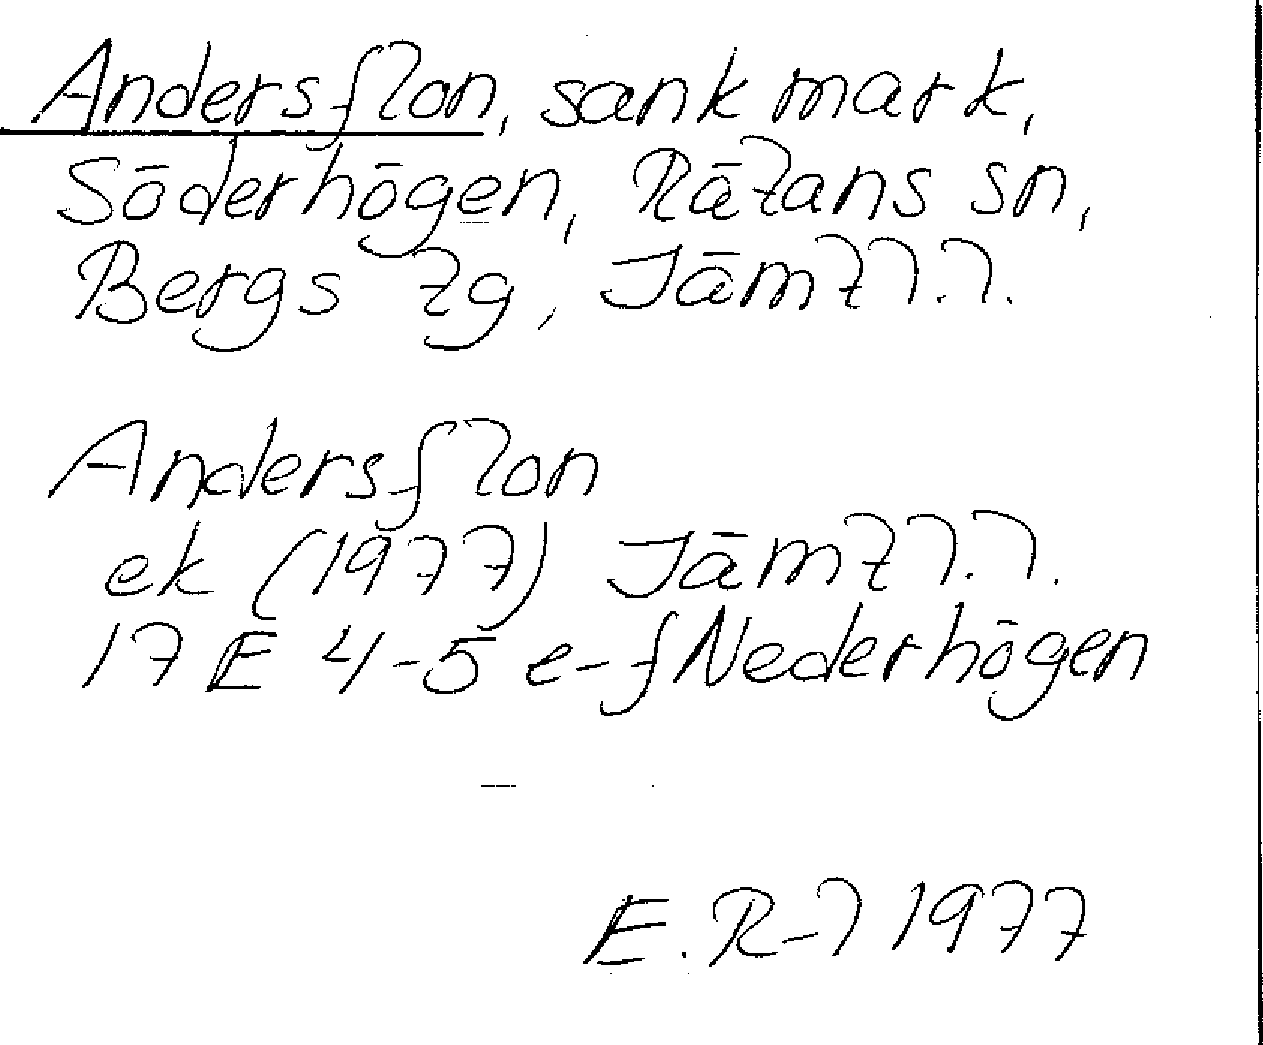 Andersflon, sank mark,
Söderhögen, Rätans sn,
Bergs tg, Jämtl.l.
Andersflon
ek (1977) Jämtl.l.
17 E 4-5 e-f Nederhögen
E.R-l 1977